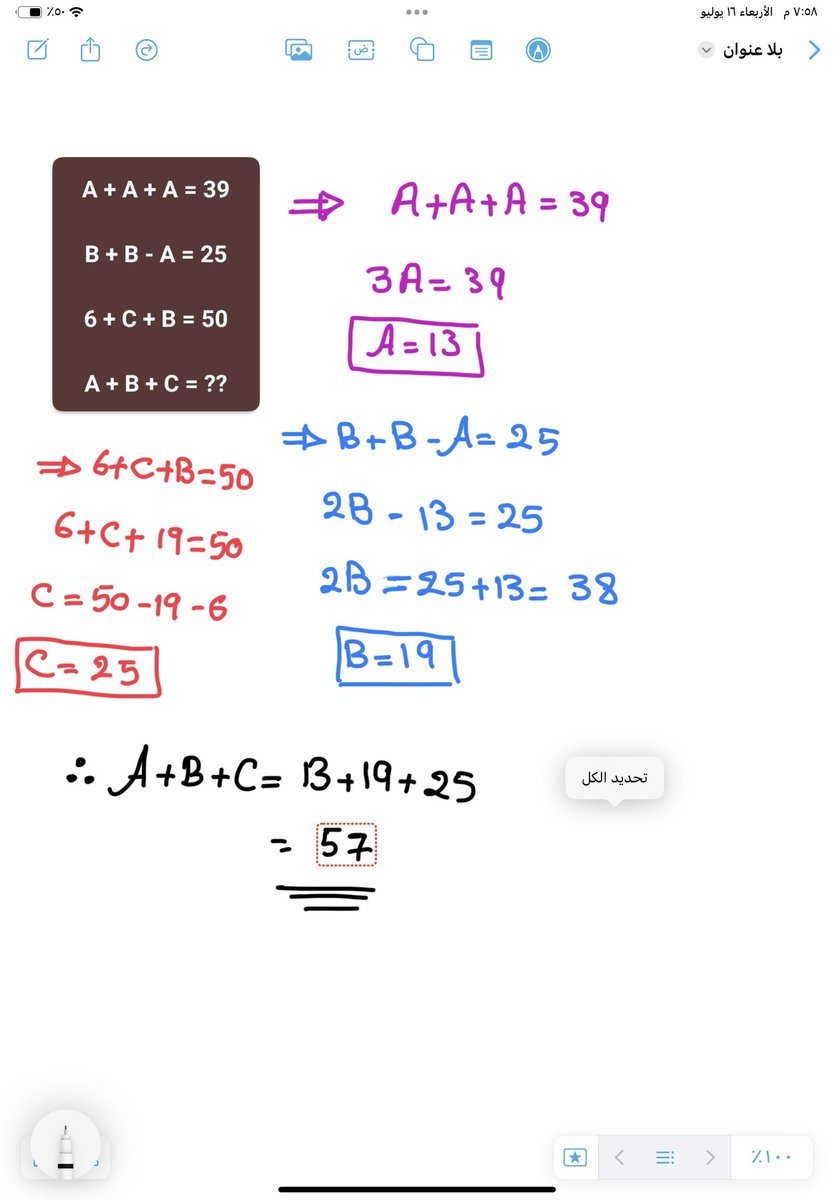 ٧:٥٨ م الأربعاء ١٦ يوليو
٪٥٠
بلا عنوان
ض
A + A + A = 39
B + B - A = 25
6 + C + B = 50
A + B + C = ??
⇒ A+A+A = 39
3A = 39
A = 13
⇒ B+B-A = 25
2B - 13 = 25
2B = 25+13 = 38
B = 19
⇒ 6+C+B=50
6+C+19=50
C = 50-19-6
C = 25
∴ A+B+C = 13+19+25
= 57
تحديد الكل
٪١٠٠